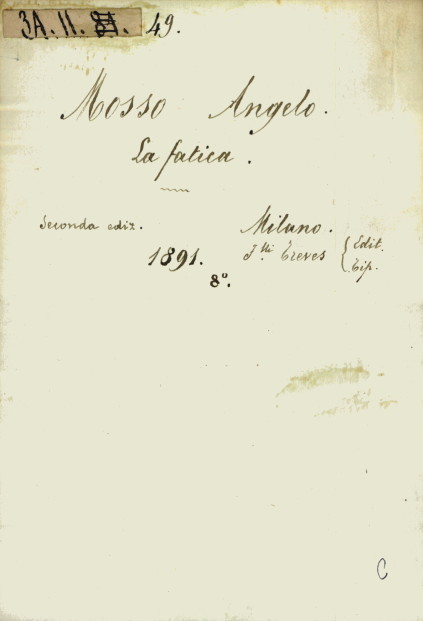 3A. 11. 49.
Mosso Angelo.
La fatica.
Seconda ediz. Milano.
1891. F.lli Treves { Edit.
Tip.
8º.
C